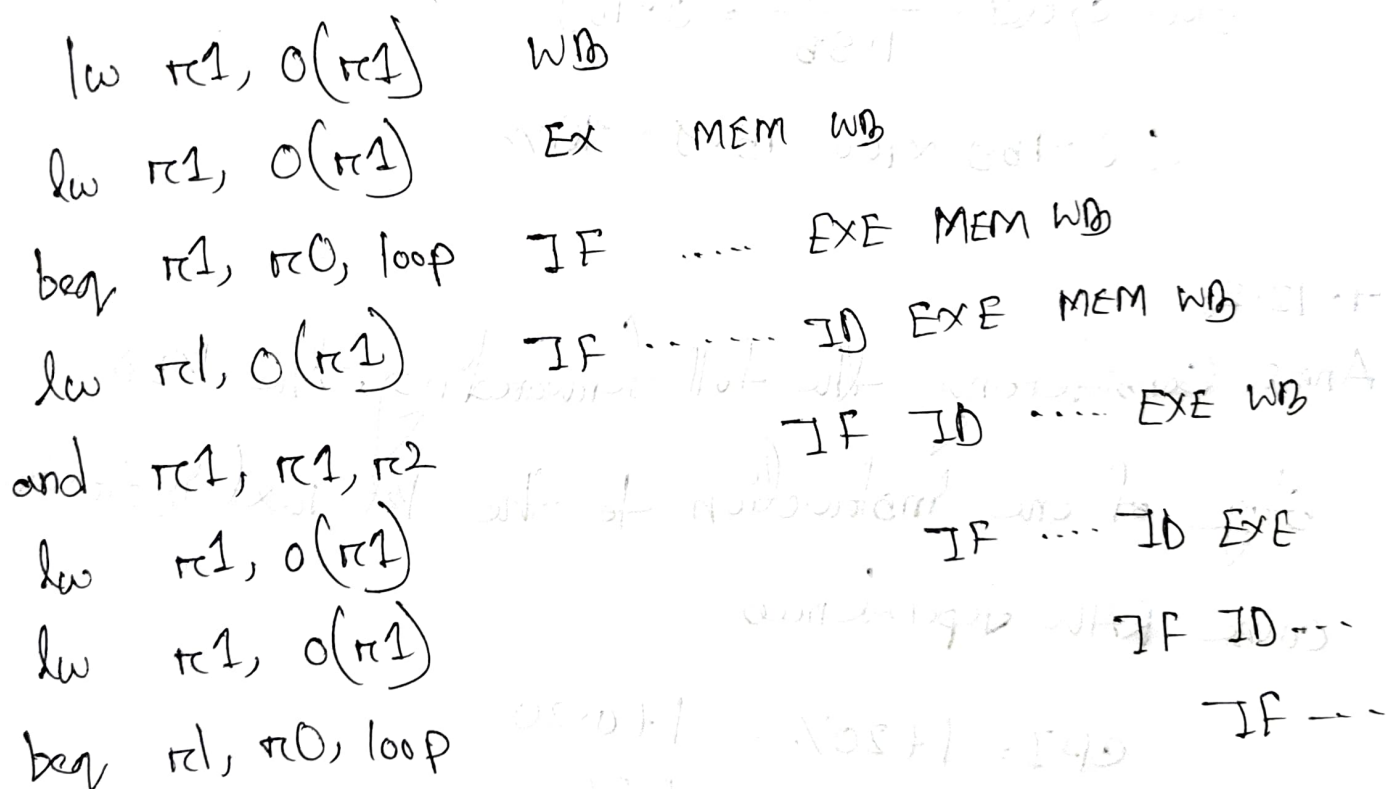 lw r1, 0(r1) WB
lw r1, 0(r1) EX MEM WB
beq r1, r0, loop IF ..... EXE MEM WB
lw r1, 0(r1) IF ....... ID EXE MEM WB
and r1, r1, r2 IF ID ..... EXE WB
lw r1, 0(r1) IF .... ID EXE
lw r1, 0(r1) IF ID ---
beq r1, r0, loop IF ---